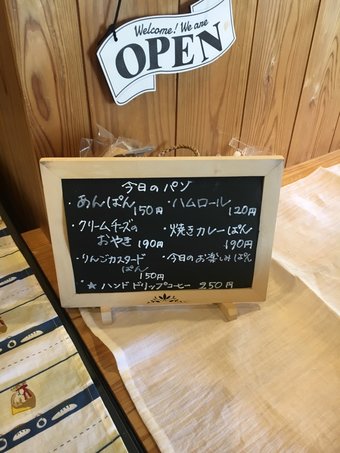 Welcome! We are
OPEN
今日のパン
・あんぱん
150円
・ハムロール
120円
・クリームチーズの
おやき 190円
・焼きカレーぱん
190円
・りんごカスタード
ぱん
150円
・今日のお楽しみぱん
・★ ハンドドリップコーヒー 250円